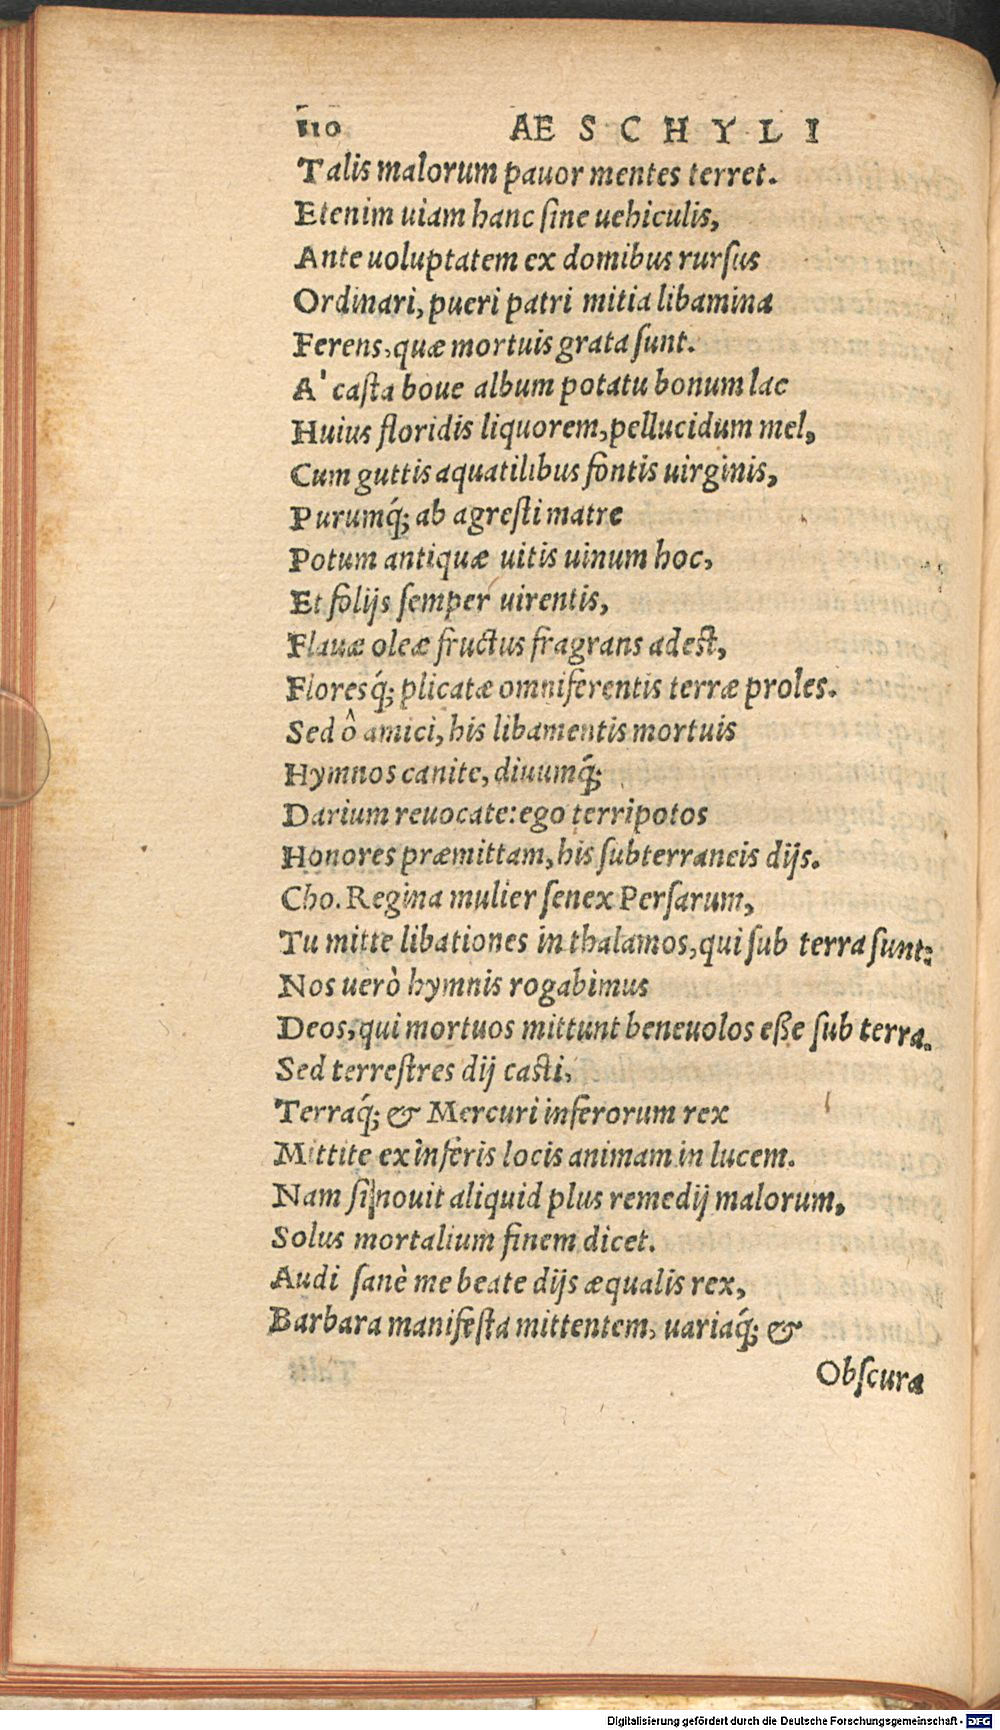 110 AESCHYLI
Talis malorum pauor mentes terret.
Etenim uiam hanc ſine uehiculis,
Ante uoluptatem ex domibus rurſus
Ordinari, pueri patri mitia libamina
Ferens, quæ mortuis grata ſunt.
A' caſta boue album potatu bonum lac
Huius floridis liquorem, pellucidum mel,
Cum guttis aquatilibus fontis uirginis,
Purumq́; ab agreſti matre
Potum antiquæ uitis uinum hoc,
Et folijs ſemper uirentis,
Flauæ oleæ fructus fragrans adeſt,
Floresq́; plicatæ omniferentis terræ proles.
Sed ô amici, his libamentis mortuis
Hymnos canite, diuumq́;
Darium reuocate: ego terripotos
Honores præmittam, his ſubterraneis dijs.
Cho. Regina mulier ſenex Perſarum,
Tu mitte libationes in thalamos, qui ſub terra ſunt:
Nos uerò hymnis rogabimus
Deos, qui mortuos mittunt beneuolos eſſe ſub terra.
Sed terreſtres dij caſti,
Terraq́; & Mercuri inferorum rex
Mittite ex inferis locis animam in lucem.
Nam ſi nouit aliquid plus remedij malorum,
Solus mortalium finem dicet.
Audi ſanè me beate dijs æqualis rex,
Barbara manifeſta mittentem, uariaq́; &
Obſcura
Digitalisierung gefördert durch die Deutsche Forschungsgemeinschaft - DFG